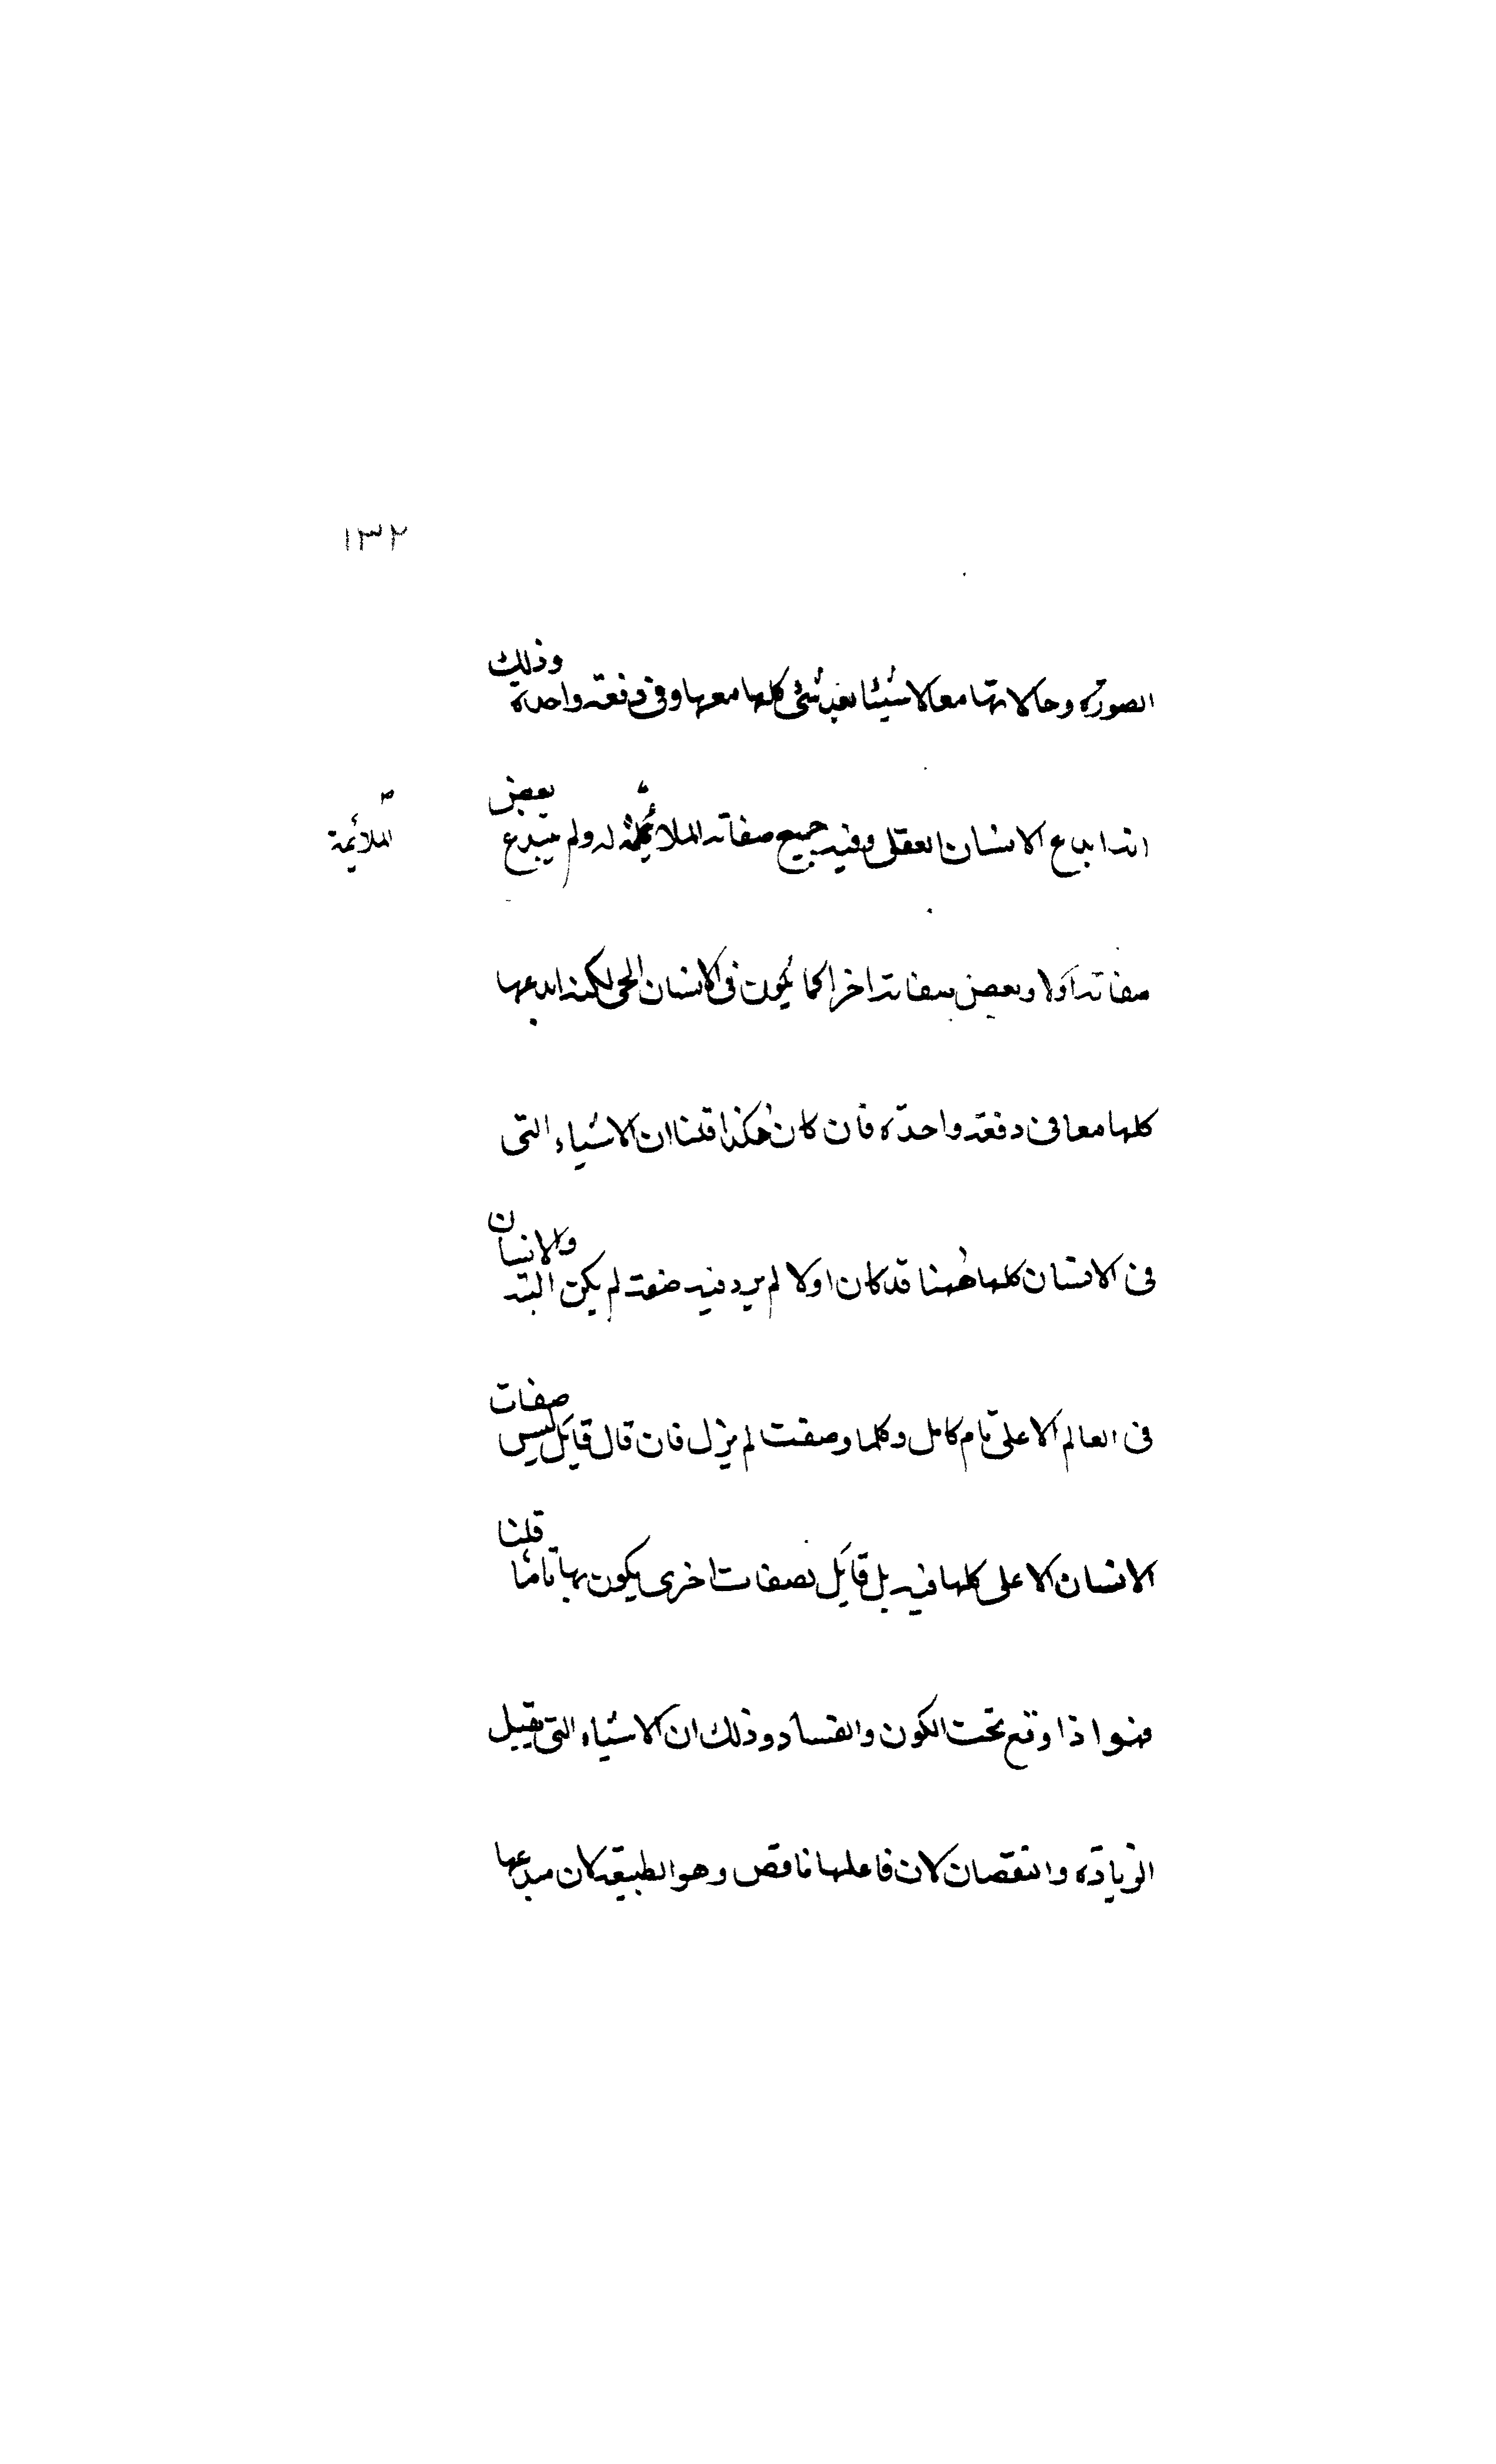 ١٣٢
الصورة وحالاتها معا لا شيئا بعد شئ كلها معها وفى دفعة واحدة وذلك
انه ابداع الانسان العقلى وفيه جميع صفاته الملائمة له ولم يبتدع بعض
الملائمة
صفاته اولا وبعض صفاته اخرا كما يكون فى الانسان الحى لكنه ابدعها
كلها معا فى دفعة واحدة فان كان هكذا قلنا ان الاشياء التى
فى الانسان كلها ههنا قد كان اولا لم يزد فيه صفة لم يكن البتة والانسان
فى العالم الاعلى تام كامل وكلما وصفت لم يزل فان قال قايل ليس صفات
الانسان الاعلى كلها فيه بل قايل بصفات اخرى يكون بها تاما قلنا
فهو اذا وقع تحت الكون والفساد وذلك ان الاشياء التى يقبل
الزيادة والنقصان لان فاعلها ناقص وهو الطبيعة لان مبدعها